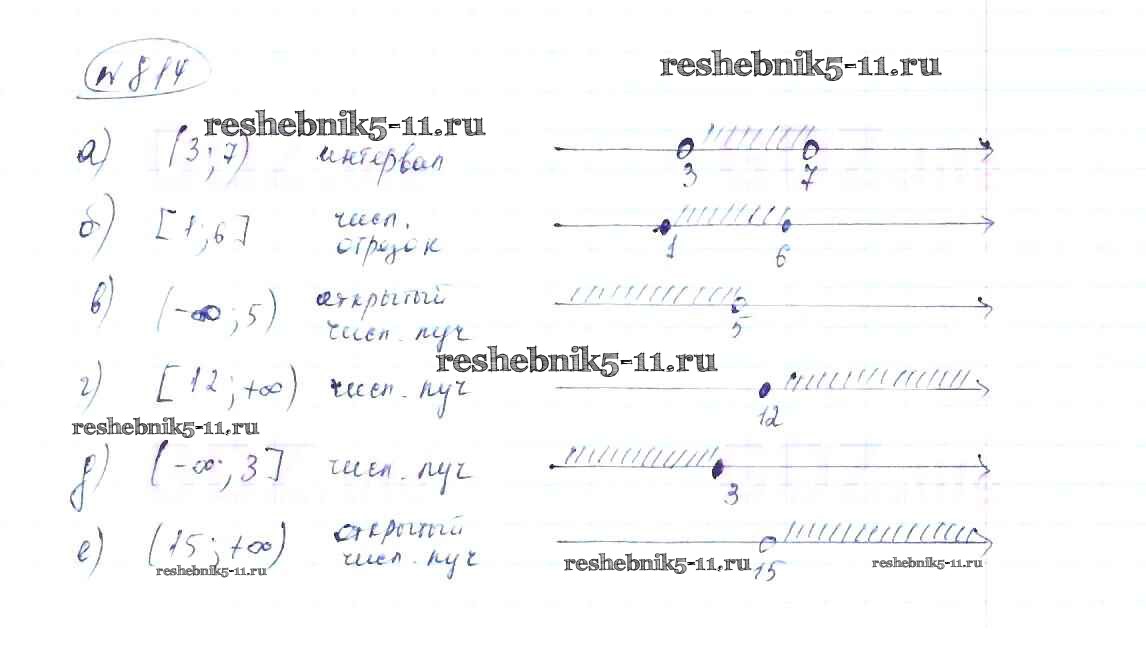 № 814
reshebnik5-11.ru
reshebnik5-11.ru
а) (3; 7) интервал 3 7
б) [1; 6] числ. отрезок 1 6
в) (-∞; 5) открытый числ. луч 5
reshebnik5-11.ru
г) [12; +∞) числ. луч 12
reshebnik5-11.ru
д) (-∞; 3] числ. луч 3
е) (15; +∞) открытый числ. луч 15
reshebnik5-11.ru
reshebnik5-11.ru
reshebnik5-11.ru